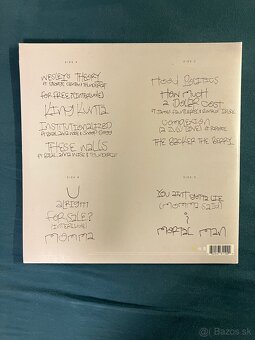 SIDE A
WESLEY'S THEORY
FT GEORGE CLINTON & THUNDERCAT
FOR FREE? (INTERLUDE)
KING KUNTA
INSTITUTIONALIZED
FT BILAL, ANNA WISE & SNOOP DOGG
THESE WALLS
FT BILAL, ANNA WISE & THUNDERCAT
HOOD POLITICS
HOW MUCH
A DOLLAR COST
FT JAMES FAUNTLEROY & RONALD ISLEY
COMPLEXION
(A ZULU LOVE) FT RAPSODY
THE BLACKER THE BERRY
U
ALRIGHT
FOR SALE?
(INTERLUDE)
MOMMA
YOU AIN'T GOTTA LIE
(MOMMA SAID)
i
MORTAL MAN
Bazos.sk